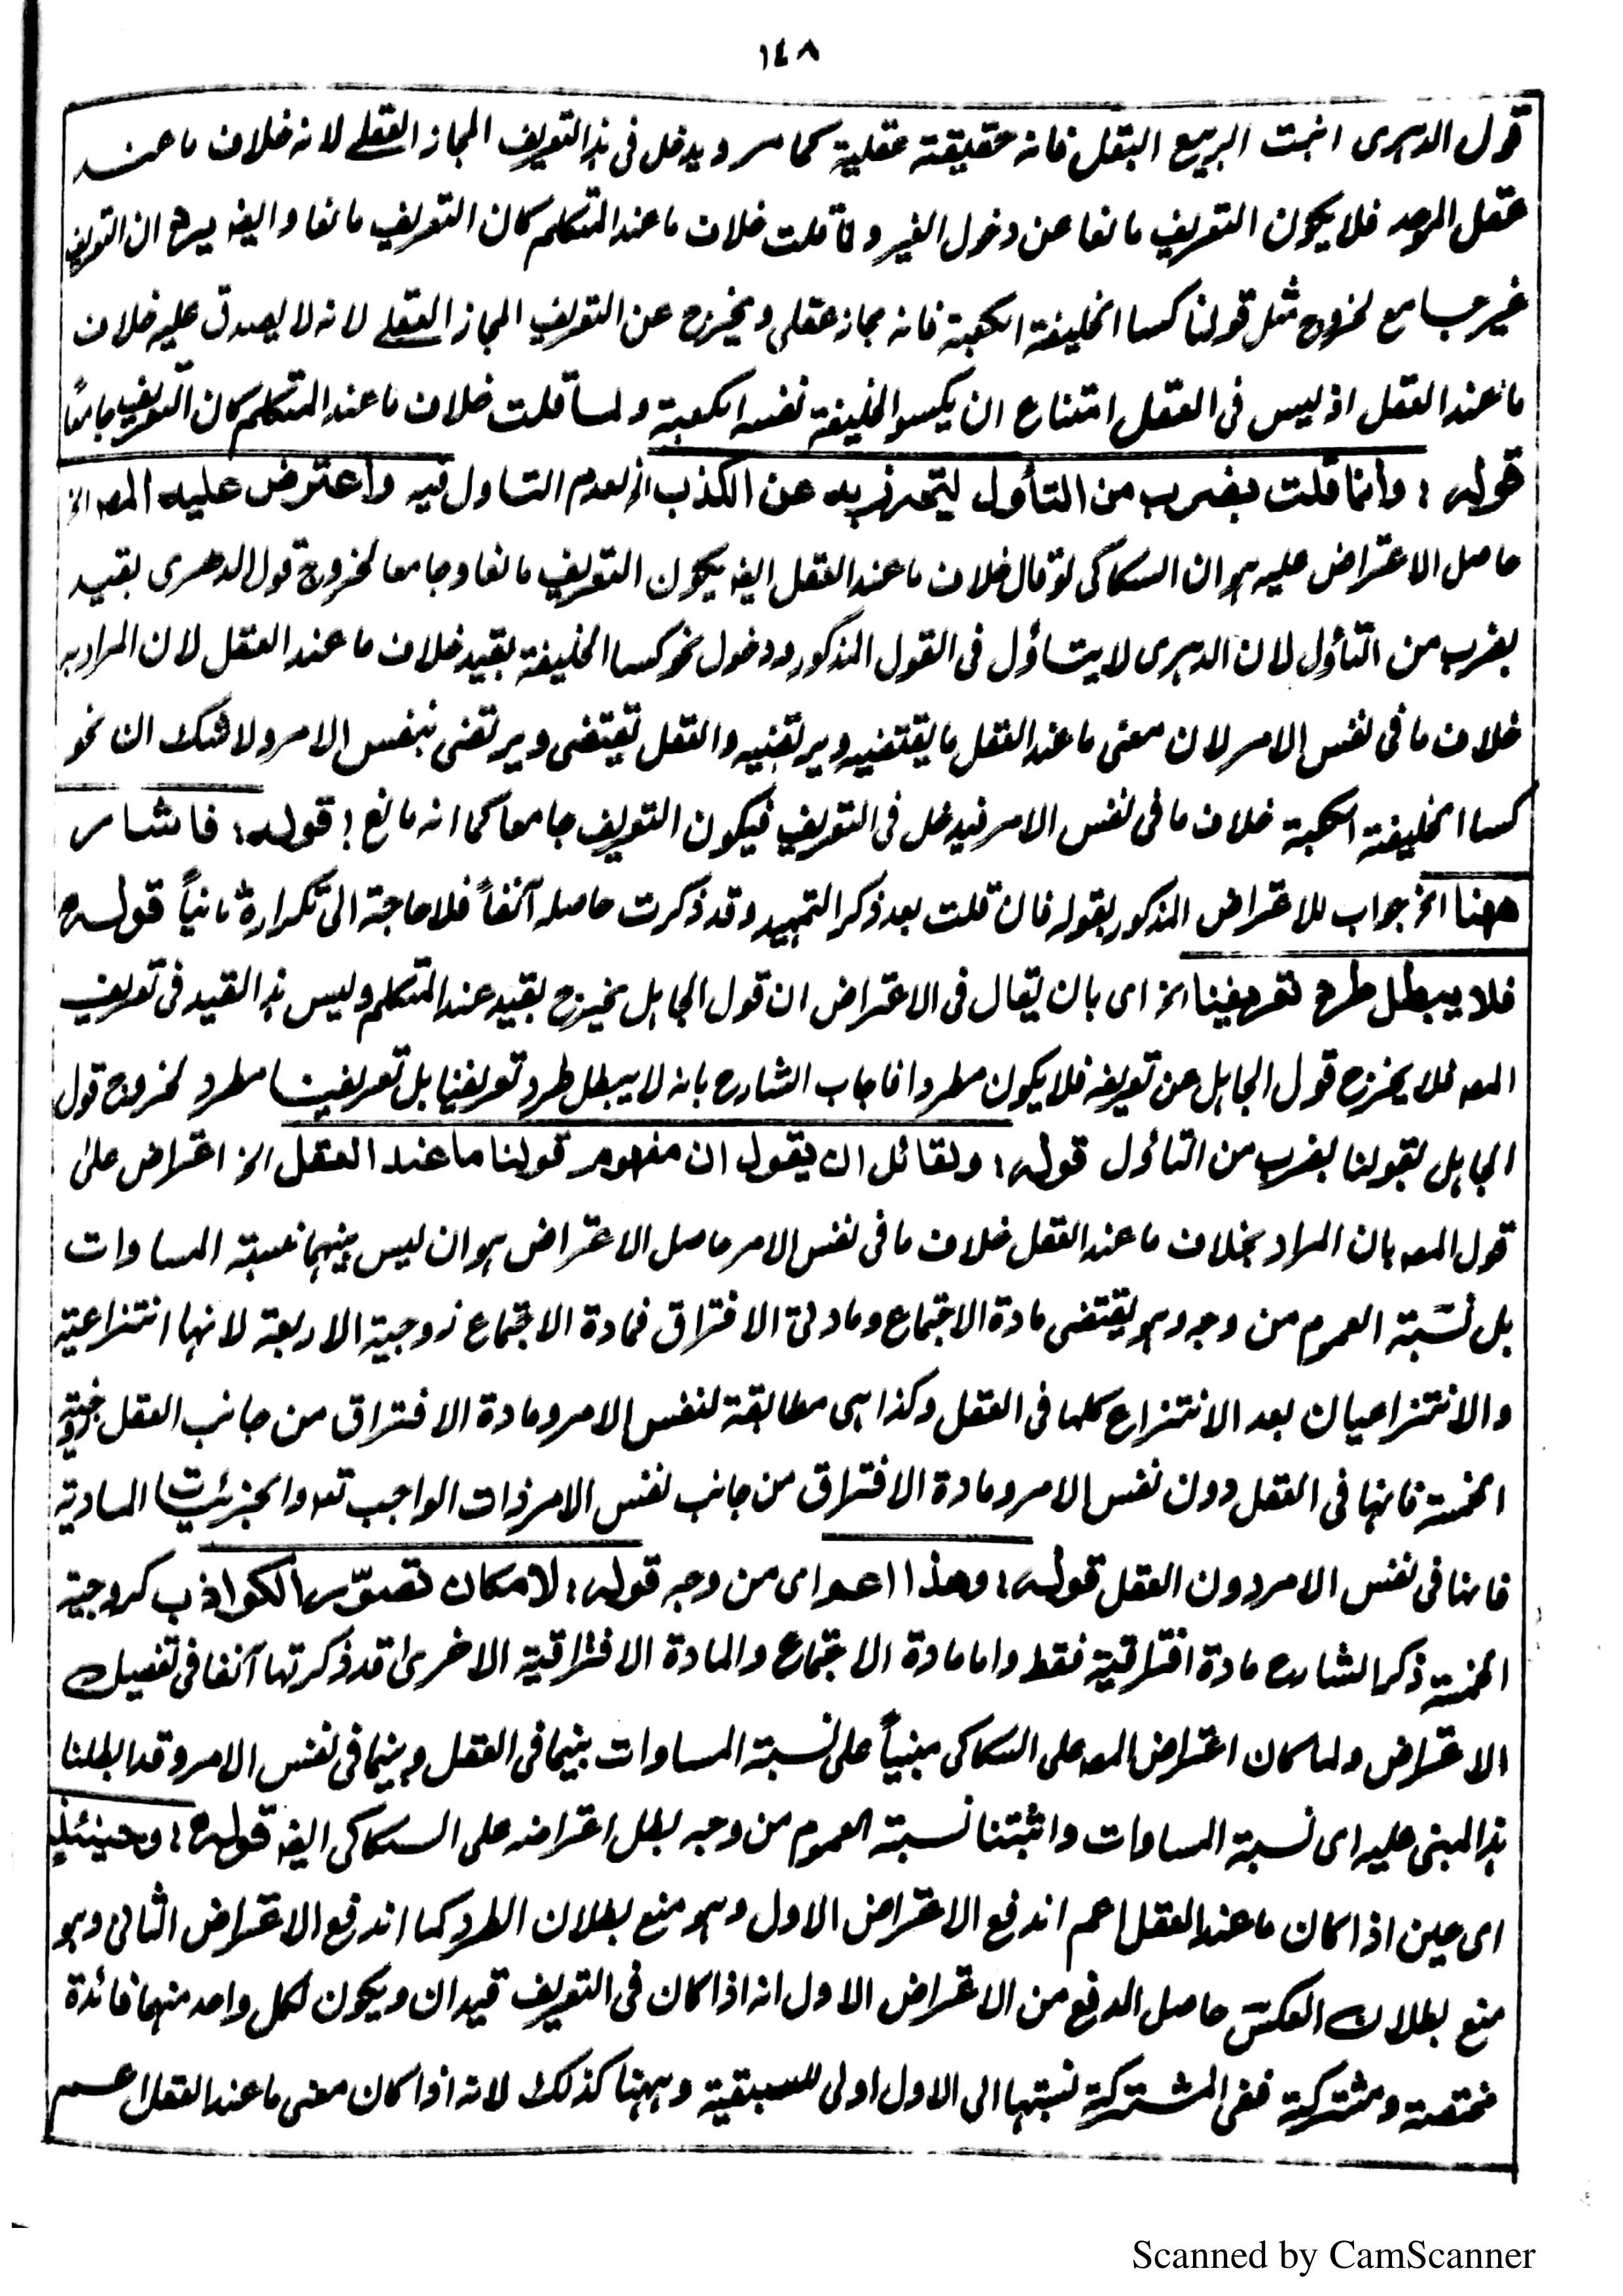 ١٤٨
قول الدہری انبت الربیع البقل فانہ حقیقتہ عقلیۃ کما مر ویدخل فی ہذا التعریف المجاز العقلے لانہ خلاف ما عند
عقل الموحد فلا یکون التعریف مانعا عن دخول الغیر ولما قلت خلاف ما عند المتکلم کان التعریف مانعا وایضہ یرد ان التعریف
غیر جامع لخروج مثل قولنا کسا الخلیفۃ الکعبۃ فانہ مجاز عقلی ویخرج عن التعریف المجاز العقلے لانہ لا یصدق علیہ خلاف
ما عند العقل اذ لیس فی العقل امتناع ان یکسو الخلیفۃ نفسہ الکعبۃ ولما قلت خلاف ما عند المتکلم کان التعریف جامعًا
قولہ: وانما قلت بضرب من التأول لیتحرز بہ عن الکذب الخ لعدم التاول فیہ واعترض علیہ المصہ الخ
حاصل الاعتراض علیہ ہو ان السکاکی لو قال خلاف ما عند العقل ایضہ یکون التعریف مانعا وجامعا لخروج قول الدھری بقید
بضرب من التأول لان الدہری لا یتأول فی القول المذکور ودخول نحو کسا الخلیفۃ بقید خلاف ما عند العقل لان المراد بہ
خلاف ما فی نفس الامر لان معنی ما عند العقل ما یقتضیہ ویرتضیہ والعقل یقتضی ویرتضی بنفس الامر ولا شک ان نحو
کسا الخلیفۃ الکعبۃ خلاف ما فی نفس الامر فیدخل فی التعریف فیکون التعریف جامعا کما انہ مانع ! قولہ: فاشار
ھھنا الخ جواب للاعتراض المذکور بقولہ فان قلت بعد ذکر التمہید وقد ذکرت حاصلہ آنفاً فلا حاجۃ الی تکرارہ ثانیاً قولہ
فلا یبطل طرد تعریفنا الخ ای بان یقال فی الاعتراض ان قول الجاہل یخرج بقید عند المتکلم ولیس ہذا القید فی تعریف
المصہ فلا یخرج قول الجاہل عن تعریفہ فلا یکون مطردا فاجاب الشارح بانہ لا یبطل طرد تعریفنا بل تعریفنا مطرد لخروج قول
الجاہل بقولنا بضرب من التأول قولہ: ولقائل ان یقول ان مفہوم قولنا ما عند العقل الخ اعتراض علیٰ
قول المصہ بان المراد بخلاف ما عند العقل خلاف ما فی نفس الامر حاصل الاعتراض ہو ان لیس بینہما نسبتہ المساوات
بل نسبتہ العموم من وجہ وہو یقتضی مادۃ الاجتماع ومادتی الافتراق فمادۃ الاجتماع زوجیۃ الاربعۃ لانہا انتزاعیۃ
والانتزاعیان بعد الانتزاع کلہا فی العقل وکذا ہی مطابقۃ لنفس الامر ومادۃ الافتراق من جانب العقل زوجیۃ
الخمسۃ فانہا فی العقل دون نفس الامر ومادۃ الافتراق من جانب نفس الامر ذات الواجب تعہ والجزئیات المادیۃ
فانہا فی نفس الامر دون العقل قولہ: وھذا اعم ای من وجہ قولہ: لامکان تصوّر الکواذب کزوجیۃ
الخمسۃ ذکر الشارح مادۃ افتراقیۃ فقط واما مادۃ الاجتماع والمادۃ الافتراقیۃ الاخریٰ قد ذکرتہا آنفا فی تفصیل
الاعتراض ولما کان اعتراض المصہ علی السکاکی مبنیاً علی نسبتہ المساوات بینما فی العقل وبینما فی نفس الامر وقد ابطلنا
ہذا المبنی علیہ ای نسبتہ المساوات واثبتنا نسبتہ العموم من وجہ بطل اعتراضہ علی السکاکی ایضہ قولہ: وحینئذٍ
ای حین اذا کان ما عند العقل اعم اندفع الاعتراض الاول وہو منع بطلان الطرد کما اندفع الاعتراض الثانی وہو
منع بطلان العکس حاصل الدفع من الاعتراض الاول انہ اذا کان فی التعریف قیدان ویکون لکل واحد منہما فائدۃ
مختصۃ ومشترکۃ ففی المشترکۃ نسبتہا الی الاول اولی للسبقیۃ وہہنا کذلک لانہ اذا کان معنی ما عند العقل اعم
Scanned by CamScanner